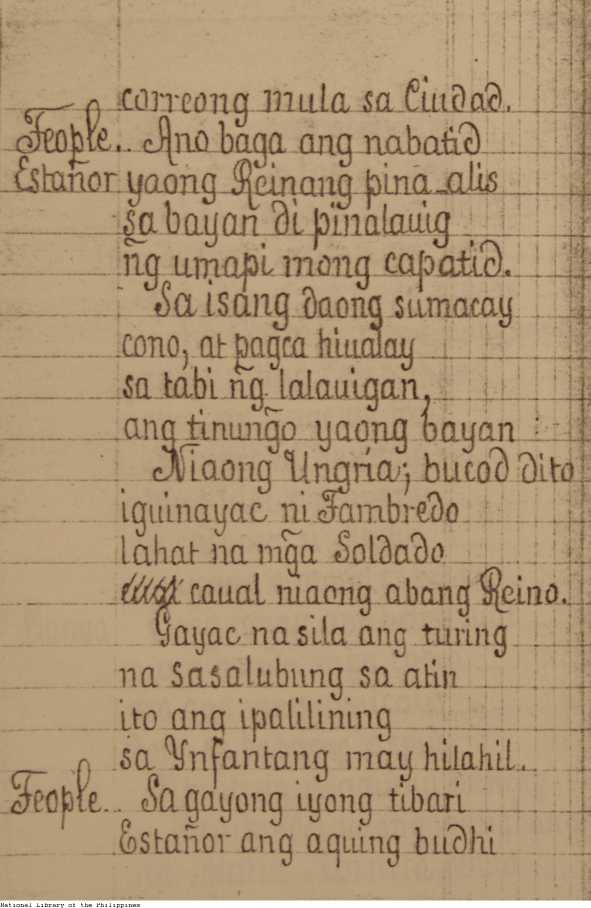 correong mula sa Ciudad.
Feople.. Ano baga ang nabatid
Estañor yaong Reinang pina-alis
sa bayan di pinalauig
n͠g umapi mong capatid.
Sa isang daong sumacay
cono, at pagca hiualay
sa tabi n͠g lalauigan,
ang tinun͠go yaong bayan
Niaong Ungria; bucod dito
iguinayac ni Fambredo
lahat na m͠ga Soldado
caual niaong abang Reino.
Gayac na sila ang turing
na sasalubung sa atin
ito ang ipalilining
sa Ynfantang may hilahil.
Feople.. Sa gayong iyong tibari
Estañor ang aquing budhi
National Library of the Philippines